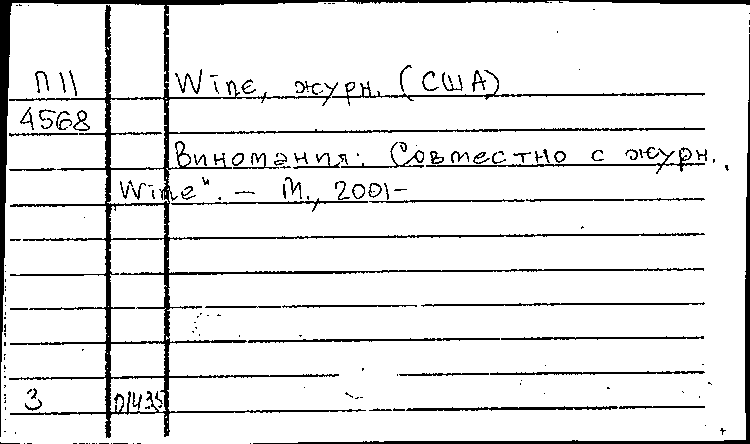 П 11 Wine, журн. (США)
4568
Виномания: Совместно с журн. „
Wine". — М., 2001-
3 01435